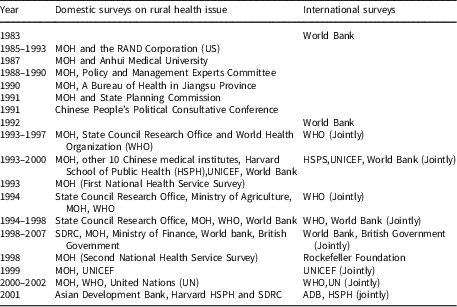 Year Domestic surveys on rural health issue International surveys
1983 World Bank
1985–1993 MOH and the RAND Corporation (US)
1987 MOH and Anhui Medical University
1988–1990 MOH, Policy and Management Experts Committee
1990 MOH, A Bureau of Health in Jiangsu Province
1991 MOH and State Planning Commission
1991 Chinese People's Political Consultative Conference
1992 World Bank
1993–1997 MOH, State Council Research Office and World Health WHO (Jointly)
Organization (WHO)
1993–2000 MOH, other 10 Chinese medical institutes, Harvard HSPS,UNICEF, World Bank (Jointly)
School of Public Health (HSPH),UNICEF, World Bank
1993 MOH (First National Health Service Survey)
1994 State Council Research Office, Ministry of Agriculture, WHO (Jointly)
MOH, WHO
1994–1998 State Council Research Office, MOH, WHO, World Bank WHO, World Bank (Jointly)
1998–2007 SDRC, MOH, Ministry of Finance, World bank, British World Bank, British Government
Government (Jointly)
1998 MOH (Second National Health Service Survey) Rockefeller Foundation
1999 MOH, UNICEF UNICEF (Jointly)
2000–2002 MOH, WHO, United Nations (UN) WHO,UN (Jointly)
2001 Asian Development Bank, Harvard HSPH and SDRC ADB, HSPH (jointly)